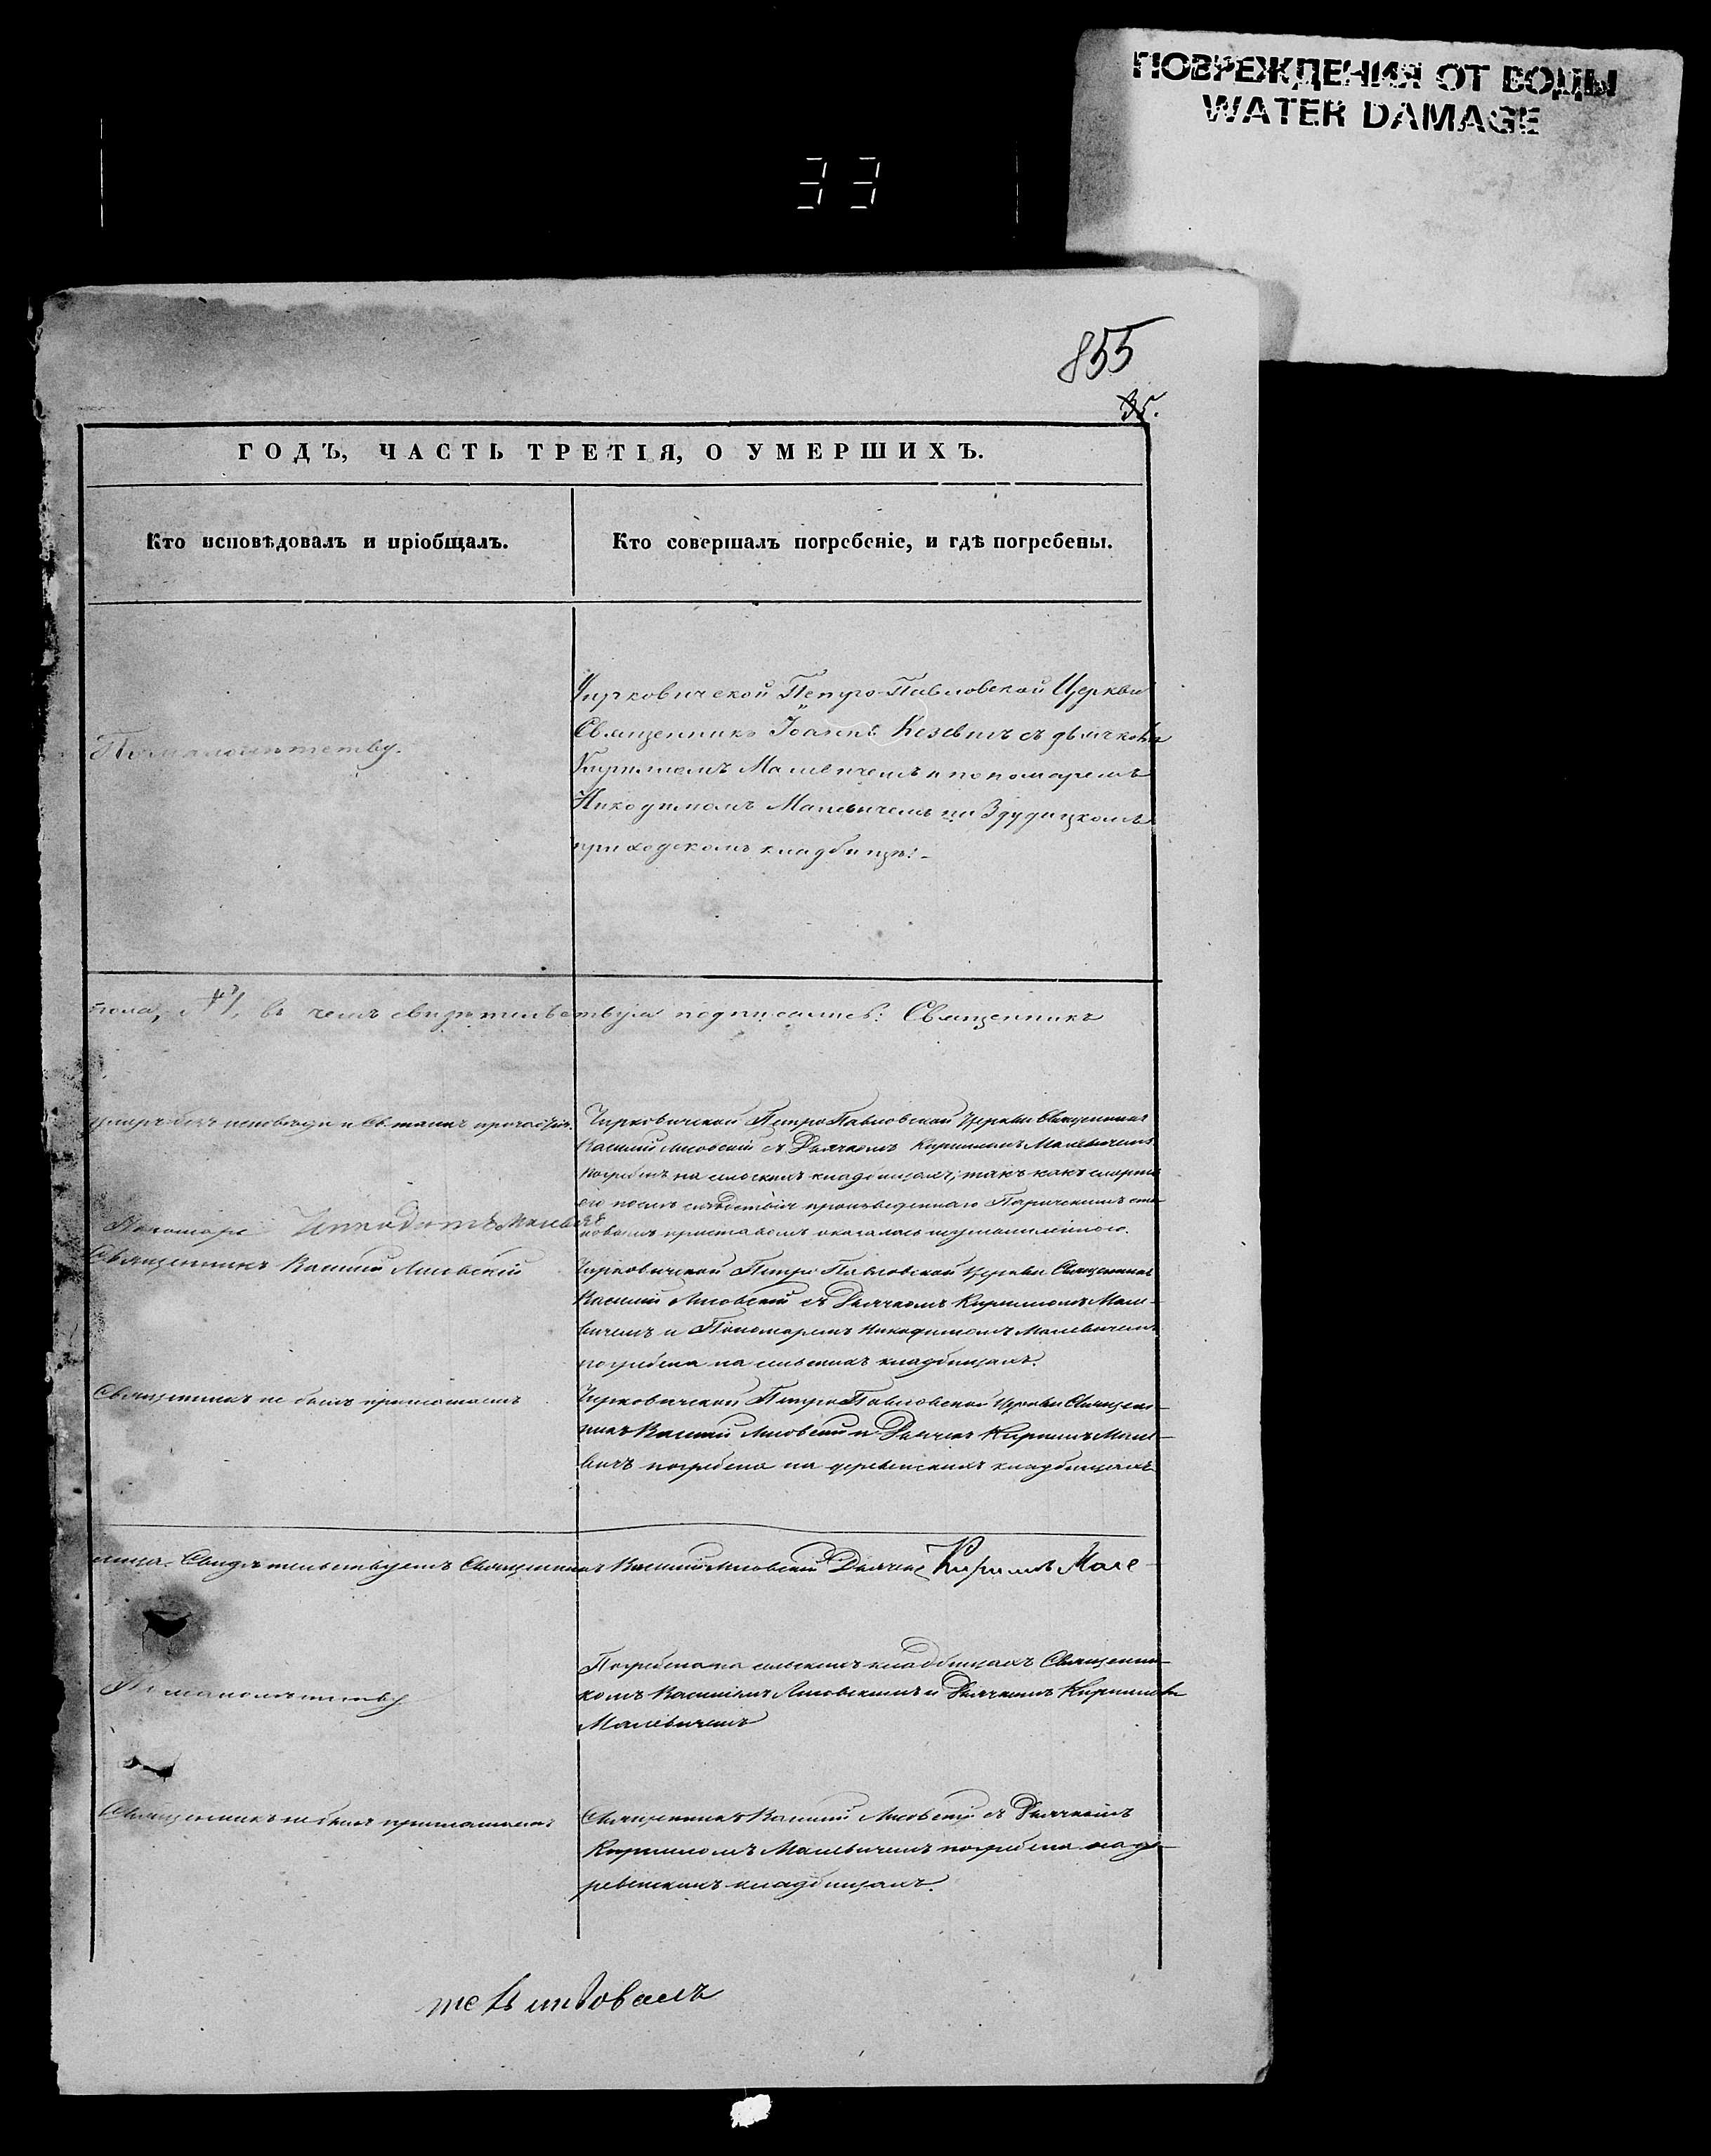 ПОВРЕЖДЕНИЯ ОТ ВОДЫ
WATER DAMAGE
33
855
35.
ГОДЪ, ЧАСТЬ ТРЕТІЯ, О УМЕРШИХЪ.
Кто исповѣдовалъ и пріобщалъ.
Кто совершалъ погребеніе, и гдѣ погребены.
По малолѣтству.
Чирковической Петро-Павловской Церкви
Священникъ Іоаннъ съ дьячкомъ
Кириломъ Малевичемъ и пономаремъ
Никодимомъ Малевичемъ на Здудицкомъ
приходскомъ кладбищѣ.
пола, въ чемъ свидѣтельствуя подписались: Священникъ
умеръ безъ исповѣди и Св. таинъ причастія.
Чирковической Петро Павловской Церкви Священникъ
Василій Лисовскій съ Дьячкомъ Кириломъ Малевичемъ
на сельскихъ кладбищахъ, такъ какъ смерть
его послѣ слѣдствія произведеннаго Паричскимъ ста-
новымъ приставомъ оказалась
Пономарь Никодимъ Малевичъ
Священникъ Василій Лисовскій
Чирковической Петро Павловской Церкви Священникъ
Василій Лисовскій съ Дьячкомъ Кириломъ Мале-
вичемъ и Пономаремъ Никодимомъ Малевичемъ
погребена на сельскихъ кладбищахъ.
Священникъ не былъ приглашаемъ
Чирковической Петро Павловской Церкви Священ-
никъ Василій Лисовскій и Дьячекъ Кирилъ Мале-
вичъ погребена на деревенскихъ кладбищахъ
Свидѣтельствуемъ Священникъ Василій Лисовскій Дьячекъ Кирилъ Мале-
По малолѣтству
Погребена на сельскихъ кладбищахъ Священни-
комъ Василіемъ Лисовскимъ и Дьячкомъ Кириломъ
Малевичемъ
Священникъ не былъ приглашаемъ
Священникъ Василій Лисовскій съ Дьячкомъ
Кириломъ Малевичемъ погребена на де-
ревенскихъ кладбищахъ.